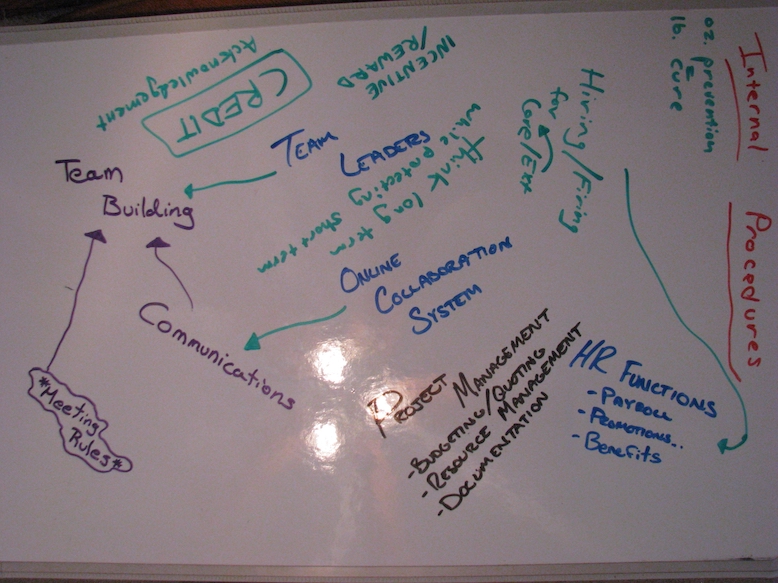 Internal
Procedures
oz. prevention
=
lb. cure
Hiring/Firing
for
Core/Ext
INCENTIVE
/REWARD
Acknowledgement
CREDIT
TEAM
LEADERS
think long term
while protecting
short term
Team
Building
ONLINE
COLLABORATION
SYSTEM
Communications
*Meeting
Rules*
PROJECT MANAGEMENT
-BUDGETING/QUOTING
-RESOURCE MANAGEMENT
-DOCUMENTATION
HR FUNCTIONS
-PAYROLL
-PROMOTIONS..
-Benefits